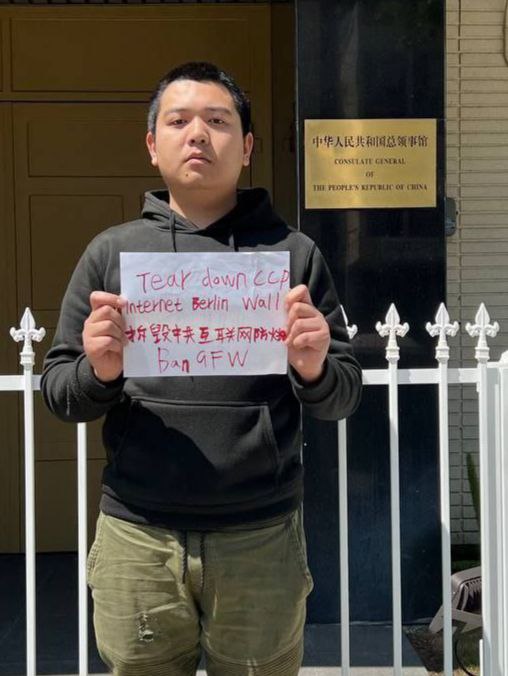 中华人民共和国总领事馆
CONSULATE GENERAL
OF
THE PEOPLE'S REPUBLIC OF CHINA
Tear down CCP
Internet Berlin Wall
拆毁中共互联网防火
Ban GFW